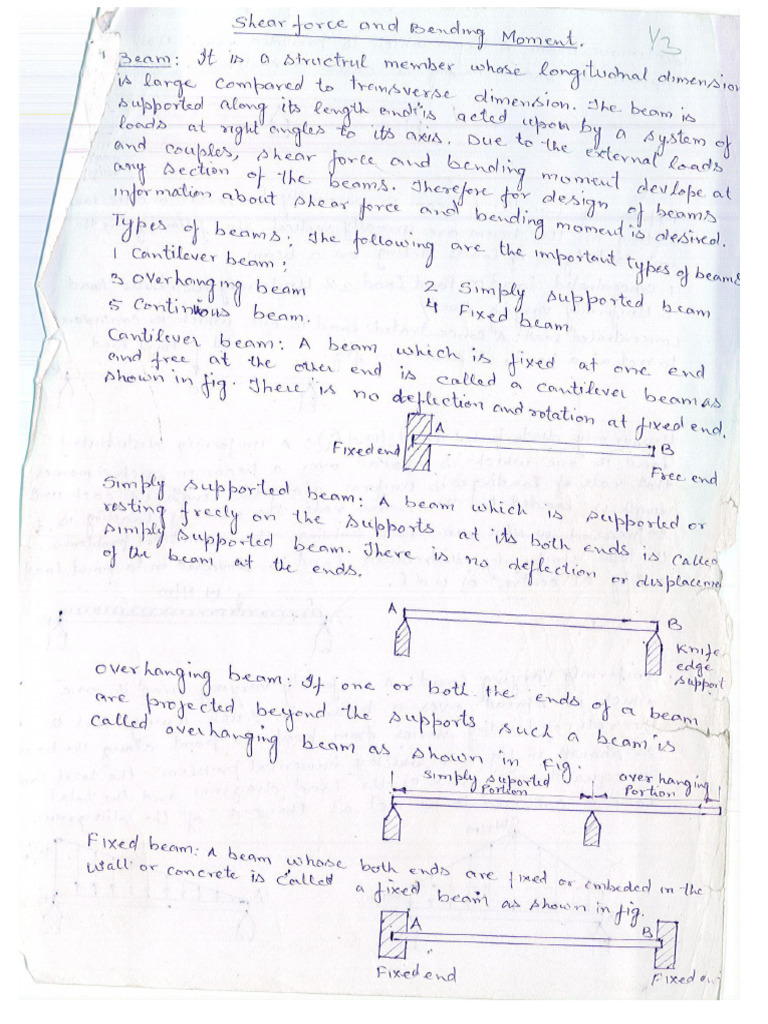 Shear force and Bending Moment.
Y3
Beam: It is a structrul member whose longitudnal dimension
is large compared to transverse dimension. The beam is
supported along its length and is acted upon by a system of
loads at right angles to its axis. Due to the external loads
and couples, shear force and bending moment devlope at
any section of the beams. Therefore for design of beams
information about shear force and bending moment is desired.
Types of beams: The following are the important types of beams
1 Cantilever beam:
2 Simply supported beam
3 Overhanging beam
4 Fixed beam
5 Continious beam.
Cantilever beam: A beam which is fixed at one end
and free at the other end is called a cantilever beam as
shown in fig. There is no deflection and rotation at fixed end.
A
Fixed end
B
Free end
Simply supported beam: A beam which is supported or
resting freely on the supports at its both ends is called
simply supported beam. There is no deflection or displacemen
of the beam at the ends.
A
B
Knife
edge
support
Overhanging beam: If one or both the ends of a beam
are projected beyond the supports such a beam is
called overhanging beam as shown in Fig.
Simply suported
Portion
over hanging
Portion
Fixed beam: A beam whose both ends are fixed or embeded in the
wall or concrete is called a fixed beam as shown in fig.
A
B
Fixed end
Fixed